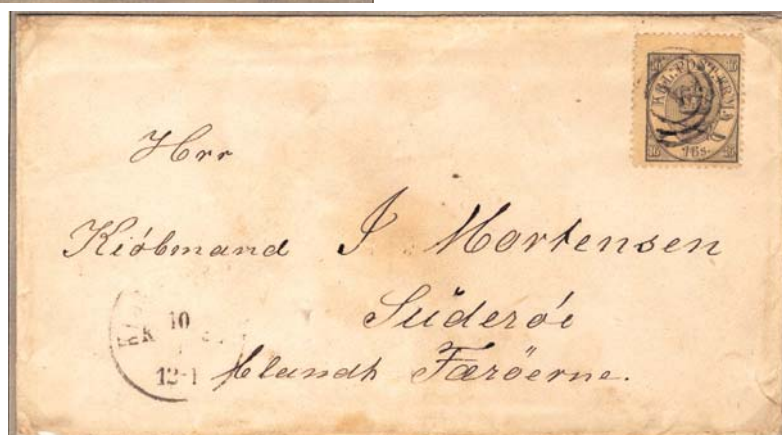 KGL. POST. FRM.
16 S.
Herr
Kiöbmand J Mortensen
Süderöi
10
12-1
Færöerne.